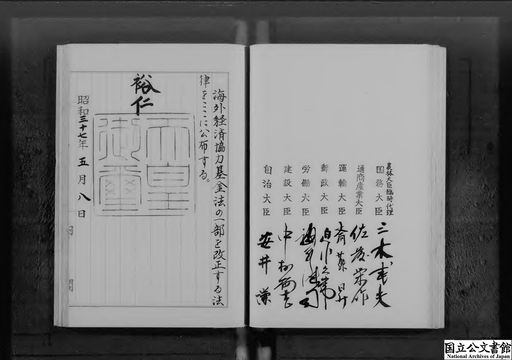 農林大臣臨時代理
国務大臣 三木武夫
通商産業大臣 佐藤栄作
運輸大臣 斎藤昇
郵政大臣 迫水久常
労働大臣 福永健司
建設大臣 中村梅吉
自治大臣 安井謙
海外経済協力基金法の一部を改正する法
律をここに公布する。
裕仁
天皇
御璽
昭和三十七年五月八日
国立公文書館
National Archives of Japan